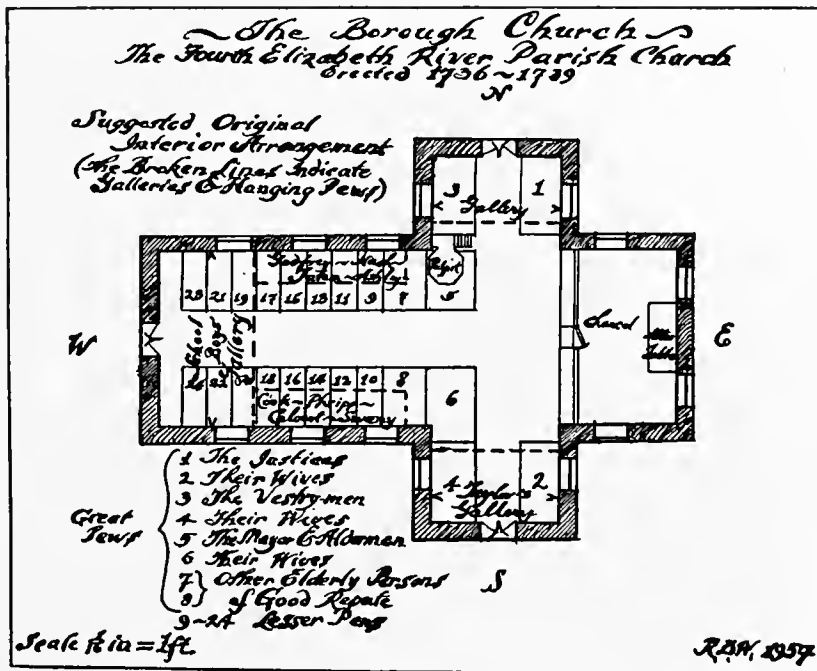 The Borough Church
The Fourth Elizabeth River Parish Church
Erected 1736~1739
N
Suggested Original
Interior Arrangement
(The Broken Lines Indicate
Galleries & Hanging Pews)
3 1
Gallery
Pulpit
23 21 19 17 15 13 11 9 7 5
W
School
Boys
Gallery
E
Altar
Table
24 22 18 16 14 12 10 8 6
4 Taylor's 2
Gallery
S
Great
Pews
1 The Justices
2 Their Wives
3 The Vestrymen
4 Their Wives
5 The Mayor & Aldermen
6 Their Wives
7 } Other Elderly Persons
8 } of Good Repute
9~24 Lesser Pews
Scale in = 1ft.
1957